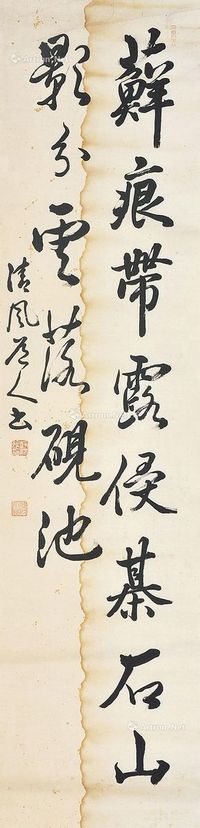 蘚痕帶露侵棊石山
影分雲落硯池
清風道人書